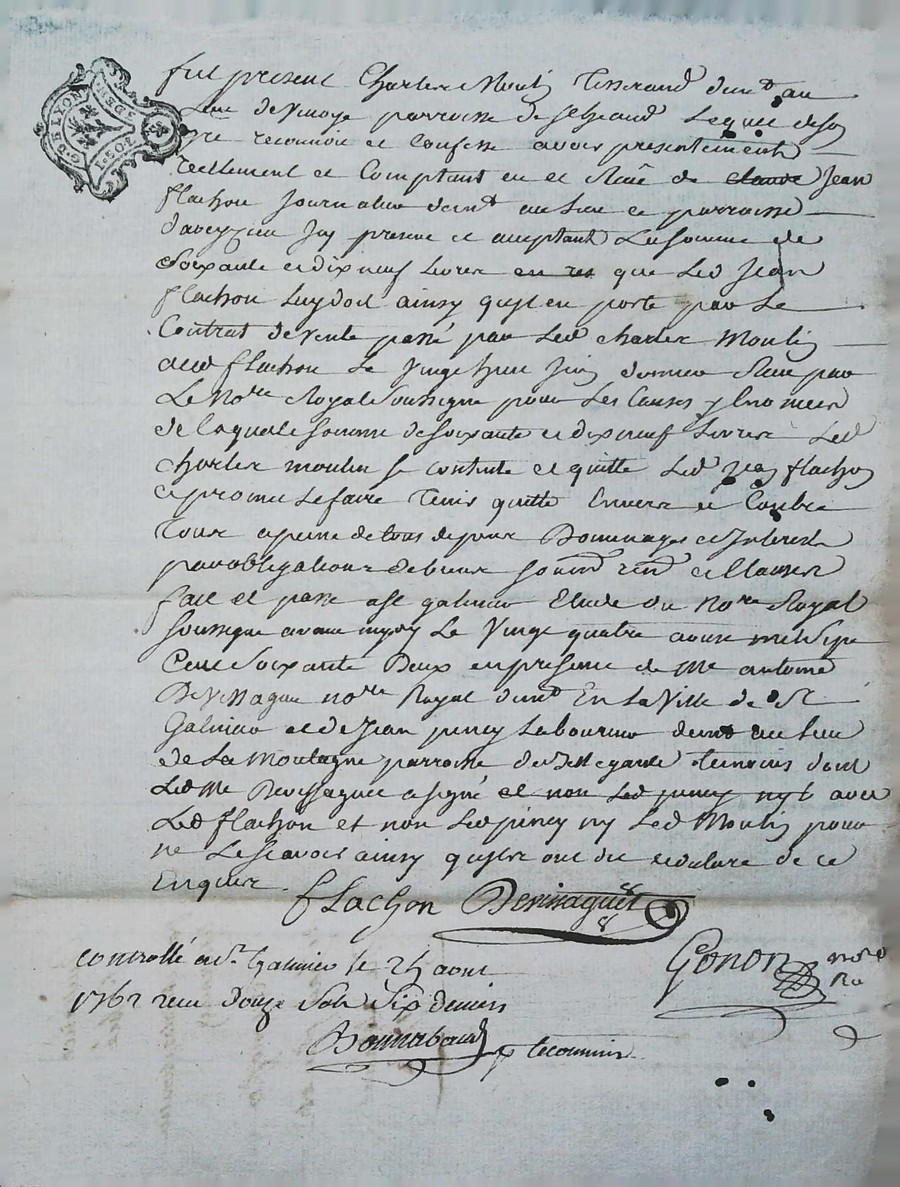 G. DE LYON
1 SOL
DEN
fut present Charles Moulin Tisserand demt au
Lieu de parroisse de Lequel de son
gre reconnoit et Confesse avoir presentement
reellement et Comptant eu et Reçu de claude Jean
flachon Journalier demt au Lieu et parroisse
daveyzieu Icy present et acceptant La somme de
Soixante et dix neuf Livres que Led Jean
flachon Luy doit ainsy quil en porte par Le
Contrat de vente passé par Led charles Moulin
aud flachon Le vingt huit Juin dernier Reçu par
Le Nore Royal soussigné pour Les Causes y
de laquelle somme de soixante et dix neuf Livres Led
charles moulin se contente et quitte Led Jean flachon
et promet Le faire Tenir quitte Envers et Contre
Tous a peine de tous depens Dommages et Interests
par obligations de biens soumon renon et Clauses
fait et passé a St galmier Etude du Nore Royal
soussigné avant midy Le Vingt quatre aoust mil sept
Cent soixante Deux en presence de Me antoine
Devissaguet nore Royal demt En La Ville de St
Galmier et de Jean juncy Laboureur demt au Lieu
de La Montagne parroisse de Bellegarde temoins dont
Led Me Devissaguet a signé et non Led juncy ny L avec
Led flachon et non Led juncy ny Led Moulin pour
ne Le scavoir ainsy quils ont dit de ce
Enquis.
flachon Devissaguet
Gonon nore
Ra
Controllé a St. Galmier le 24 aout
1762 recu Douze Sols Six deniers
Bonnabaud p le commis